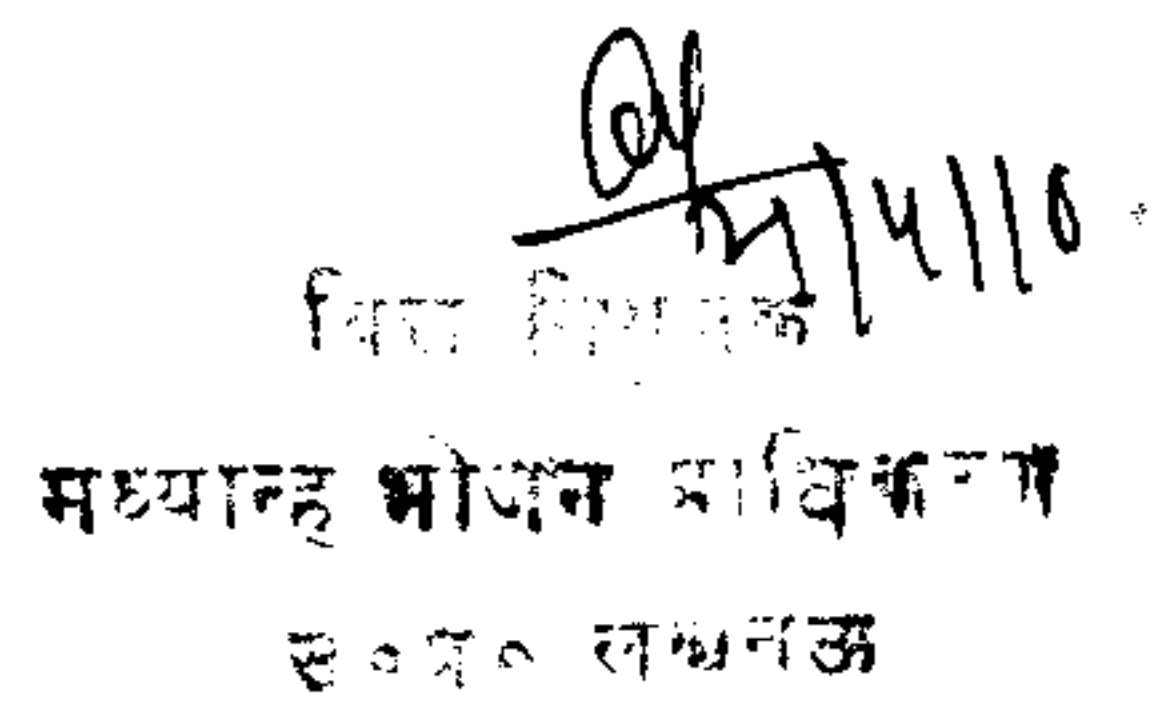 वित्त नियन्त्रक
मध्यान्ह भोजन प्राधिकरण
उ०प्र० लखनऊ